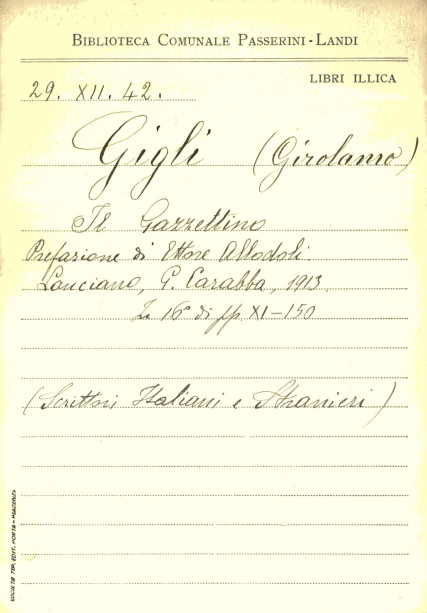 BIBLIOTECA COMUNALE PASSERINI-LANDI
LIBRI ILLICA
29. XII. 42.
Gigli (Girolamo)
Il Gazzettino
Prefazione di Ettore Allodoli.
Lanciano, G. Carabba, 1913.
In 16° di pp. XI-150
(Scrittori Italiani e Stranieri)
SOCIETÀ TIP. EDIT. PORTA - PIACENZA